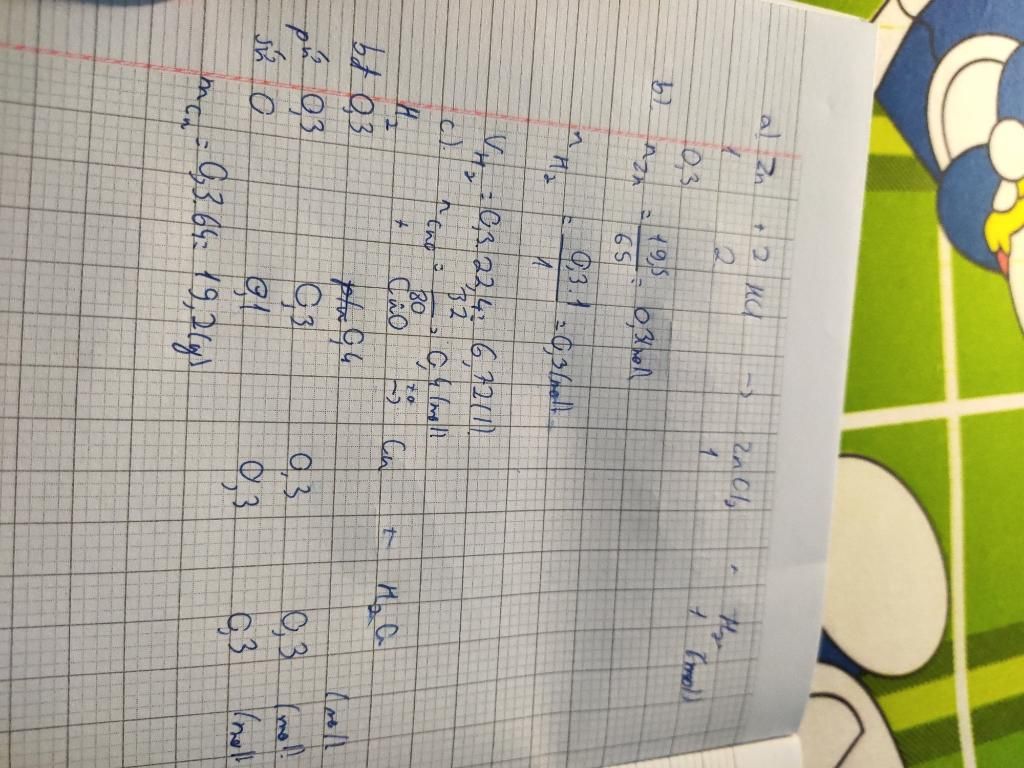 a) Zn + 2 HCl → ZnCl₂ + H₂
1 2 1 1 (mol)
0,3
b) n Zn = 19,5 / 65 = 0,3 mol
n H₂ = 0,3.1 / 1 = 0,3 (mol)
V H₂ = 0,3.22,4 = 6,72 (l)
c) n CuO = 80 / 32 = 0,4 (mol)
H₂ + CuO t° → Cu + H₂O
bđ 0,3 0,4 (mol)
pứ 0,3 0,3 0,3 0,3 (mol)
sứ 0 0,1 0,3 0,3 (mol)
m Cu = 0,3.64 = 19,2 (g)